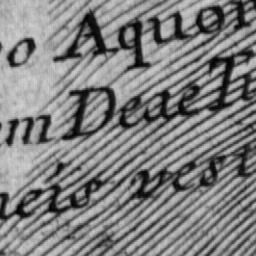 o Aquor
m Deae Ti
neis vest